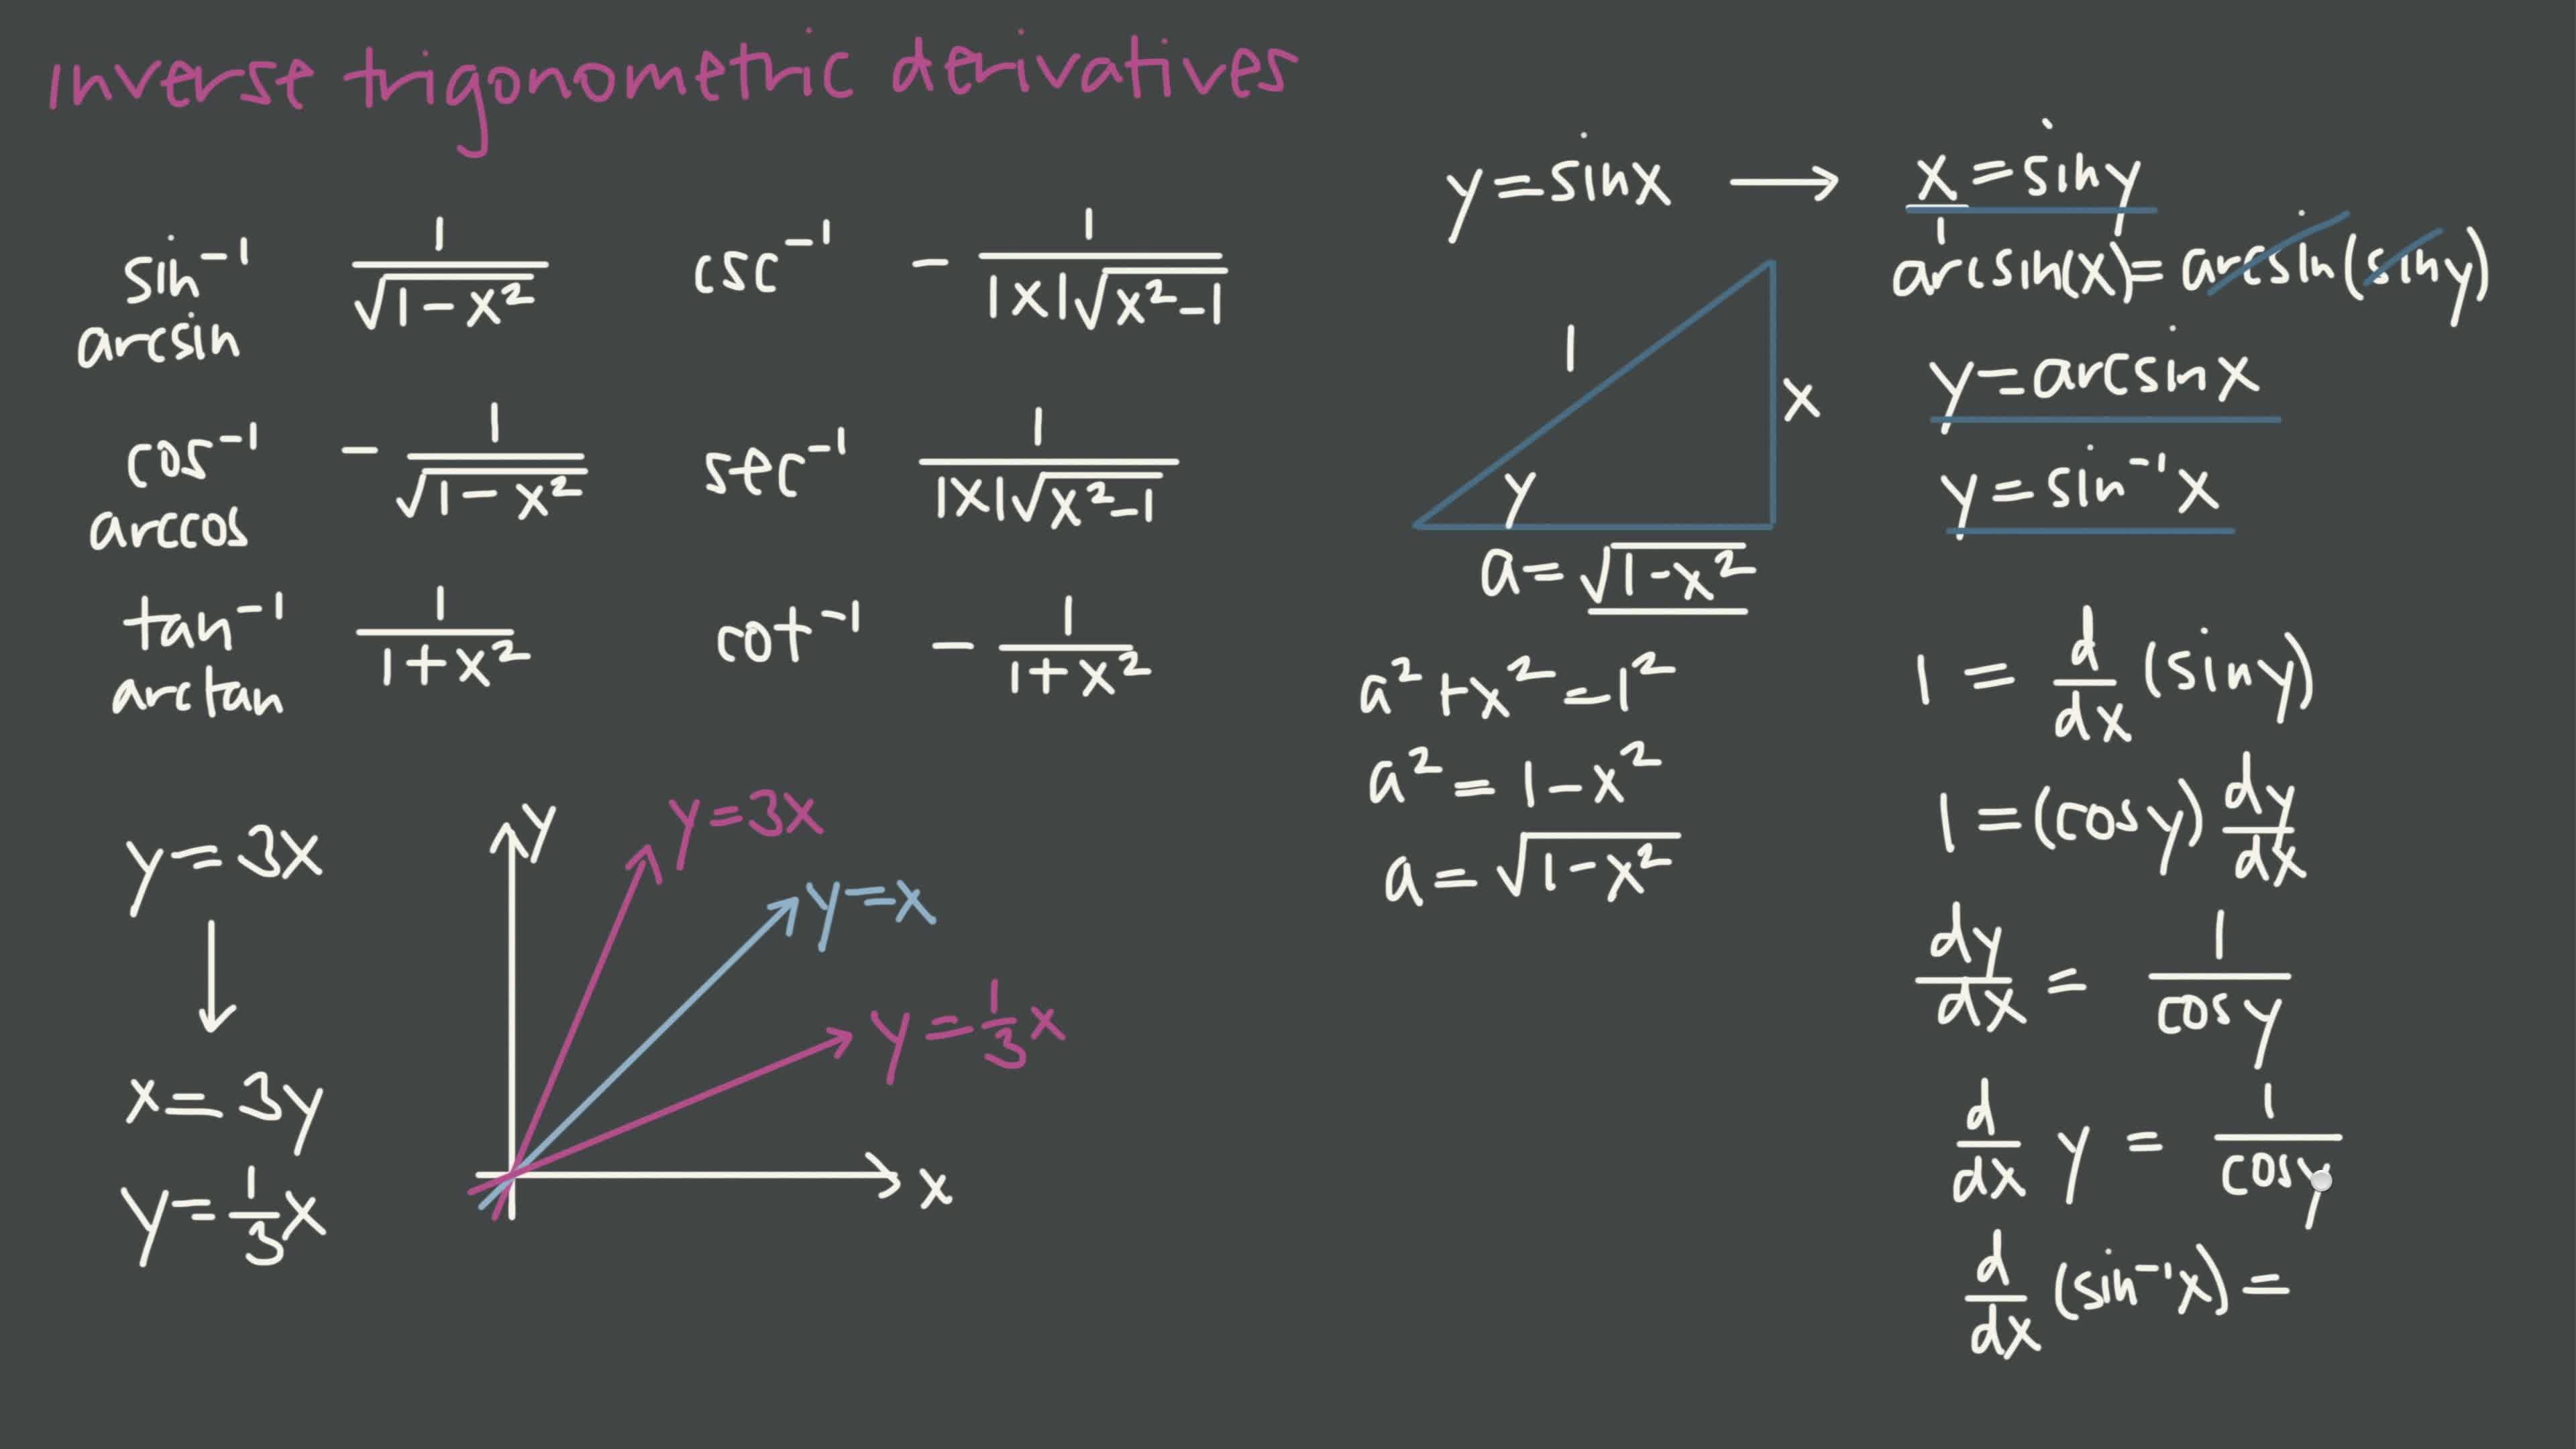 inverse trigonometric derivatives
sin⁻¹ 1/√(1-x²) csc⁻¹ - 1/(|x|√(x²-1))
arcsin
cos⁻¹ - 1/√(1-x²) sec⁻¹ 1/(|x|√(x²-1))
arccos
tan⁻¹ 1/(1+x²) cot⁻¹ - 1/(1+x²)
arctan
y=3x
↓
x=3y
y=1/3 x
y
y=3x
y=x
y=1/3 x
x
y=sinx → x/1=siny
1
x
y
a=√(1-x²)
a²+x²=1²
a²=1-x²
a=√(1-x²)
arcsin(x)=arcsin(siny)
y=arcsinx
y=sin⁻¹x
1=d/dx(siny)
1=(cosy)dy/dx
dy/dx=1/cosy
d/dx y=1/cosy
d/dx(sin⁻¹x)=